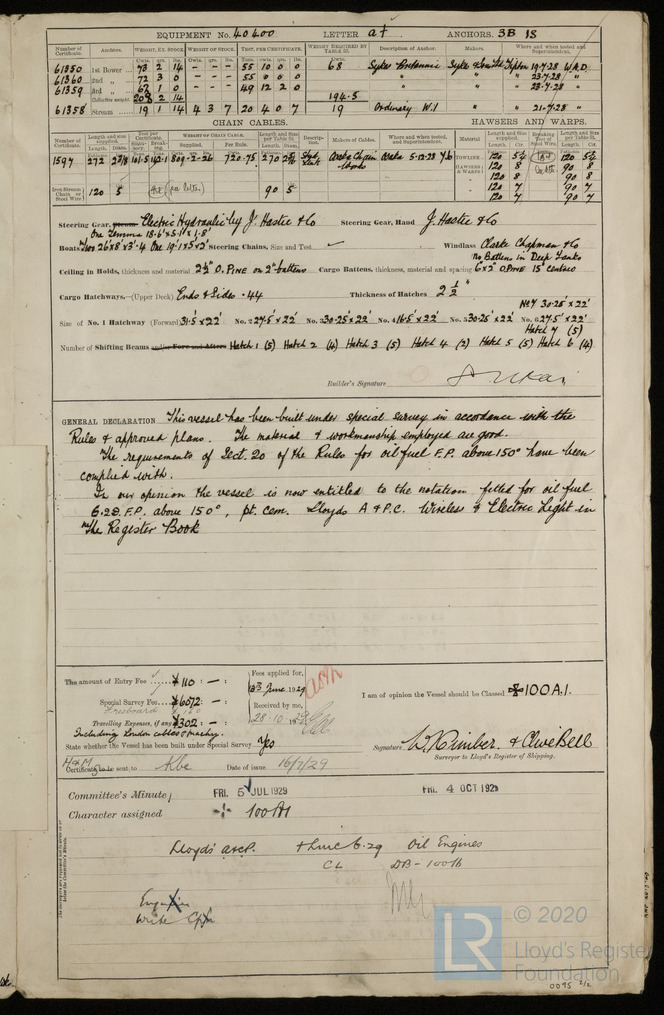 EQUIPMENT No. 40400 LETTER at ANCHORS. 3B 1S
Number of Certificate. Anchors. WEIGHT, EX. STOCK. WEIGHT OF STOCK. TEST, PER CERTIFICATE. WEIGHT REQUIRED BY TABLE 31. Description of Anchor. Makers. Where and when tested and Superintendent.
61350 1st Bower 73 2 14 - - - 55 10 0 0 68 Sykes Britannic Sykes Tipton 19.7.28 W.A.D.
61360 2nd " 72 3 0 - - - 55 0 0 0 " " 23.7.28 "
61359 3rd " 62 1 0 - - - 49 12 2 0 " " 23.7.28 "
Collective weight 208 2 14 194.5
61358 Stream 19 1 14 4 3 7 20 4 0 7 19 Ordinary W.I " " 21.7.28 "
CHAIN CABLES. HAWSERS AND WARPS.
Number of Certificate. Length and size supplied. Test per Certificate. WEIGHT OF CHAIN CABLE. Length and Size per Table 31. Description. Makers of Cables. Where and when tested, and Superintendent. Material Length and Size supplied. Breaking Test of Steel Wire. Length and Size per Table 31.
Length. Diam. Supplied. Per Rule. Length. Diam. Length. Cir.
1597 272 2 3/8 101.5 142.1 809-2-26 720.75 270 2 3/8 Stud Link Chain Works 5.12.28 TOWLINE 120 5 1/4 120 5 1/4
HAWSERS & WARPS 120 8 90 8
120 8 90 8
120 7 90 7
120 7 90 7
Iron Stream Chain or Steel Wire 120 5 (see letter) 90 5
Steering Gear, Steam Electric Hydraulic by J. Hastie & Co Steering Gear, Hand J. Hastie & Co
One 18.6'x5.1'x1.8'
Boats Two 26'x8'x3'.4 One 19'.1x5'x2' Steering Chains, Size and Test ✓ Windlass Clarke Chapman & Co
No Battens in Deep Tanks
Ceiling in Holds, thickness and material 2½" O. PINE on 2" battens Cargo Battens, thickness, material and spacing 6x2 O.PINE 15" centres
Cargo Hatchways.—(Upper Deck) Ends & Sides .44 Thickness of Hatches 2½"
No 7 30.25'x22'
Size of No. 1 Hatchway (Forward) 31.5'x22' No. 2 27.5'x22' No. 3 30.25'x22' No. 4 16.5'x22' No. 5 30.25'x22' No. 6 27.5'x22'
Hatch 7 (5)
Number of Shifting Beams and/or Fore and Afters Hatch 1 (5) Hatch 2 (4) Hatch 3 (5) Hatch 4 (2) Hatch 5 (5) Hatch 6 (4)
Builder's Signature
GENERAL DECLARATION This vessel has been built under special survey in accordance with the
Rules & approved plans. The material & workmanship employed are good.
The requirements of Sect. 20 of the Rules for oil fuel F.P. above 150° have been
complied with.
In our opinion the vessel is now entitled to the notation fitted for oil fuel
6.29. F.P. above 150°, pt. cem. Lloyds A & P.C. Wireless & Electric Light in
the Register Book
The amount of Entry Fee £110 : — :
Special Survey Fee £6072 : — :
Freeboard
Travelling Expenses, if any £302 : — :
Including London cables & machy.
Fees applied for,
June 1929
Received by me,
28.10.29
I am of opinion the Vessel should be Classed ✠100A.1.
State whether the Vessel has been built under Special Survey Yes
Signature W. Kimber & Clive Bell
Surveyor to Lloyd's Register of Shipping.
H&M
Certificate to be sent to Kbe Date of issue 16/7/29
Committee's Minute FRI. 5 JUL 1929 FRI. 4 OCT 1929
Character assigned ✠ 100A1
Lloyds' A&CP. + LMC 6.29 Oil Engines
CL DB-100lb
Write
LR © 2020
Lloyd's Register
Foundation
0095 2/2